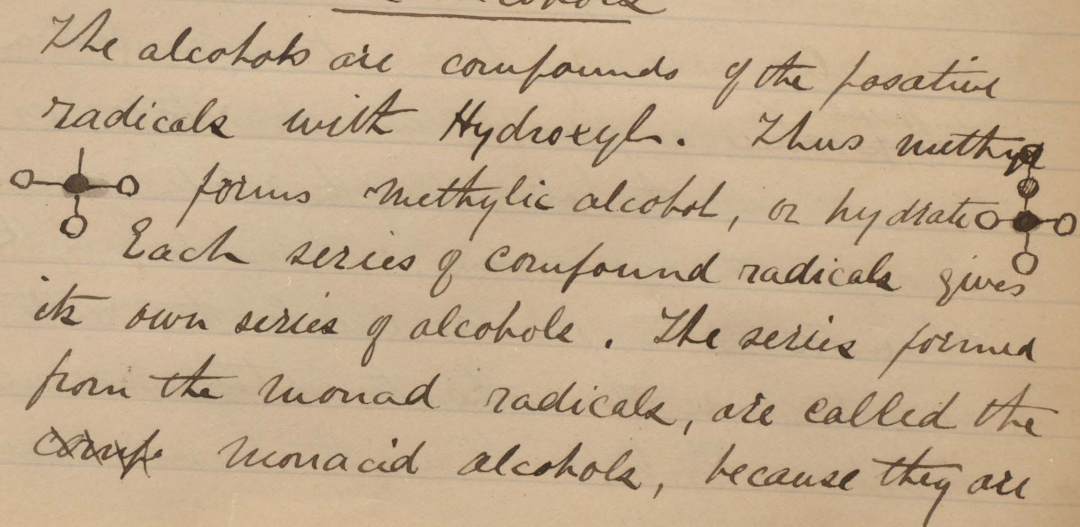 Alcohols
The alcohols are compounds of the posative
radicals with Hydroxyl. Thus methyl
forms methylic alcohol, or hydrate
Each series of compound radicals gives
its own series of alcohols. The series formed
from the monad radicals, are called the
comp monacid alcohols, because they are